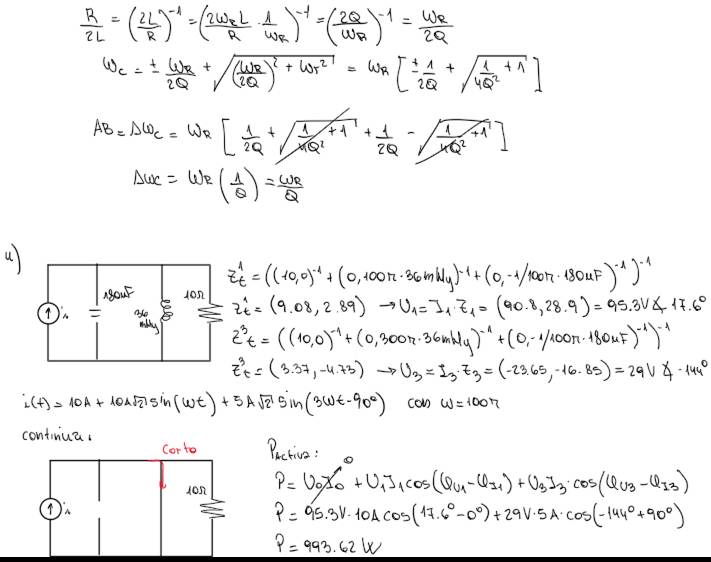 R/2L = (2L/R)⁻¹ = (2ωRL/R · 1/ωR)⁻¹ = (2Q/ωR)⁻¹ = ωR/2Q
ωc = ± ωR/2Q + √((ωR/2Q)² + ωr²) = ωR [± 1/2Q + √(1/4Q² + 1)]
AB = Δωc = ωR [1/2Q + √(1/4Q² + 1) + 1/2Q - √(1/4Q² + 1)]
Δωc = ωR (1/Q) = ωR/Q
4)
180uF
36 mHy
10Ω
is
Zt¹ = ((10,0)⁻¹ + (0,100π·36mHy)⁻¹ + (0,-1/100π·180uF)⁻¹)⁻¹
Zt¹ = (9.08, 2.89) → U1 = I1·Z1 = (90.8, 28.9) = 95.3V ∡ 17.6°
Z³t = ((10,0)⁻¹ + (0,300π·36mHy)⁻¹ + (0,-1/100π·180uF)⁻¹)⁻¹
Zt³ = (3.37, -4.73) → U3 = I3·Z3 = (-23.65, -16.85) = 29V ∡ -144°
i(t) = 10A + 10A√2 sin(ωt) + 5A√2 sin(3ωt-90°) con ω=100π
continua:
corto
10Ω
is
PActiva:
P = U0I0 0 + U1I1cos(φU1-φI1) + U3I3·cos(φU3-φI3)
P = 95.3V·10A cos(17.6°-0°) + 29V·5A·cos(-144°+90°)
P = 993.62 W